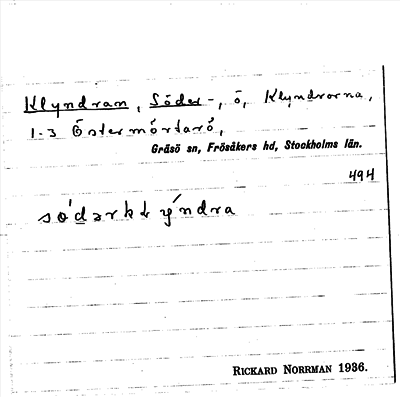 Klyndran, Söder-, ö, Klyndrorna,
1-3 Östermörtarö,
Gräsö sn, Frösåkers hd, Stockholms län.
494
södərklýndra
RICKARD NORRMAN 1936.